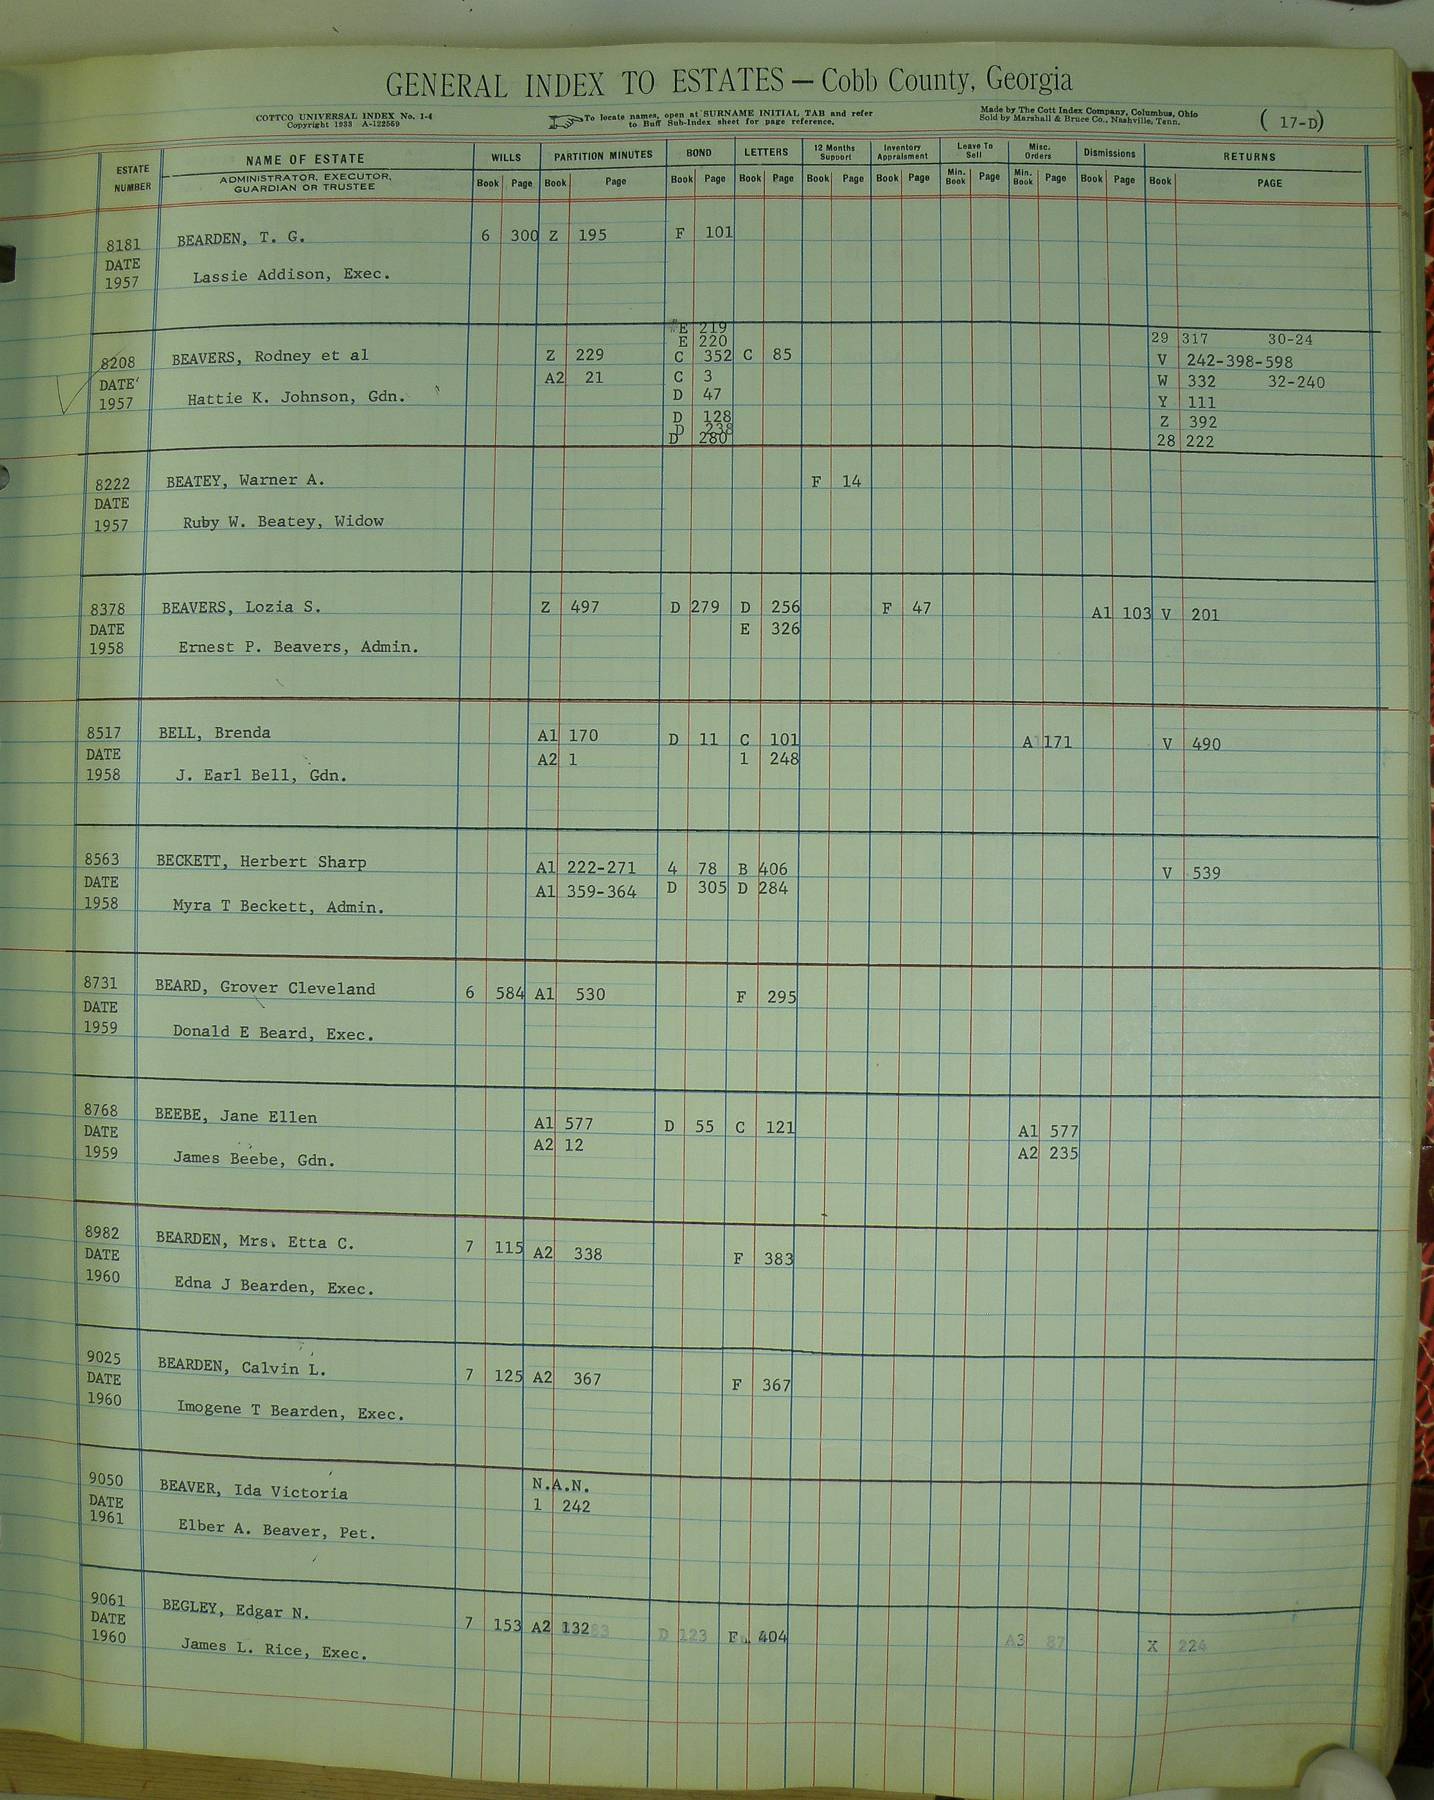 GENERAL INDEX TO ESTATES — Cobb County, Georgia
COTTCO UNIVERSAL INDEX No. 1-4
Copyright 1933 A-122559
To locate names, open at SURNAME INITIAL TAB and refer
to Buff Sub-Index sheet for page reference.
Made by The Cott Index Company, Columbus, Ohio
Sold by Marshall & Bruce Co., Nashville, Tenn.
(17-D)
ESTATE NUMBER
NAME OF ESTATE
ADMINISTRATOR, EXECUTOR, GUARDIAN OR TRUSTEE
WILLS PARTITION MINUTES BOND LETTERS 12 Months Support Inventory Appraisment Leave To Sell Misc. Orders Dismissions RETURNS
Book Page Book Page Book Page Book Page Book Page Book Page Min. Book Page Min. Book Page Book Page Book PAGE
8181 BEARDEN, T. G. 6 300 Z 195 F 101
DATE
1957 Lassie Addison, Exec.
*E 219
E 220 29 317 30-24
8208 BEAVERS, Rodney et al Z 229 C 352 C 85 V 242-398-598
DATE A2 21 C 3 W 332 32-240
1957 Hattie K. Johnson, Gdn. D 47 Y 111
D 128 Z 392
D 238
D 280 28 222
8222 BEATEY, Warner A. F 14
DATE
1957 Ruby W. Beatey, Widow
8378 BEAVERS, Lozia S. Z 497 D 279 D 256 F 47 A1 103 V 201
DATE E 326
1958 Ernest P. Beavers, Admin.
8517 BELL, Brenda A1 170 D 11 C 101 A 171 V 490
DATE A2 1 1 248
1958 J. Earl Bell, Gdn.
8563 BECKETT, Herbert Sharp A1 222-271 4 78 B 406 V 539
DATE A1 359-364 D 305 D 284
1958 Myra T Beckett, Admin.
8731 BEARD, Grover Cleveland 6 584 A1 530 F 295
DATE
1959 Donald E Beard, Exec.
8768 BEEBE, Jane Ellen A1 577 D 55 C 121 A1 577
DATE A2 12 A2 235
1959 James Beebe, Gdn.
8982 BEARDEN, Mrs. Etta C. 7 115 A2 338 F 383
DATE
1960 Edna J Bearden, Exec.
9025 BEARDEN, Calvin L. 7 125 A2 367 F 367
DATE
1960 Imogene T Bearden, Exec.
9050 BEAVER, Ida Victoria N.A.N.
DATE 1 242
1961 Elber A. Beaver, Pet.
9061 BEGLEY, Edgar N.
DATE 7 153 A2 132 D 123 F 404 A3 87 X 224
1960 James L. Rice, Exec.